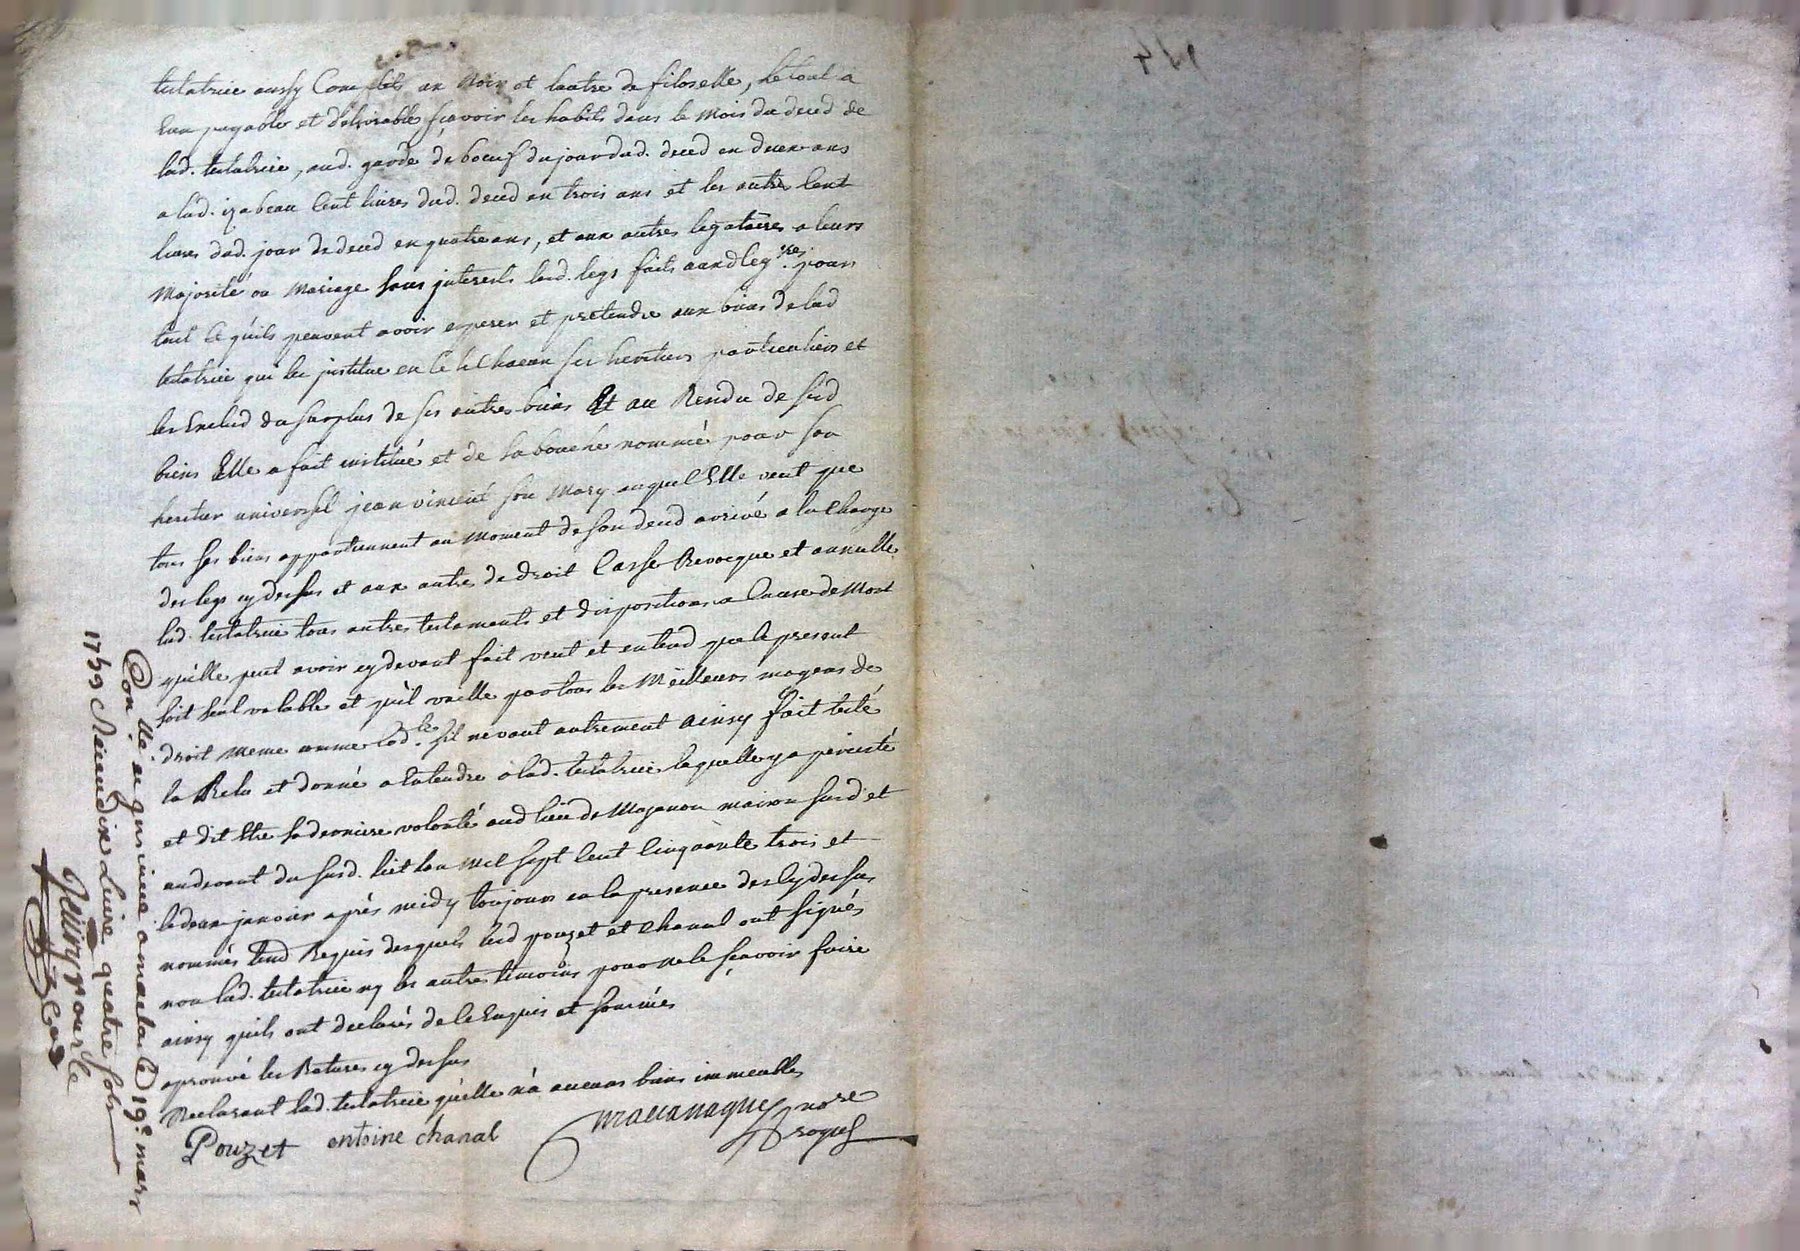 testatrice aussy Complets un Noir et lautre de filoselle, Le tout a
Eux payable et delivrable scavoir les habits dans le mois du deced de
lad. testatrice, aud. garde de boeuf du jour dud. deced en deux ans
a lad. izabeau Cent livres dud. deced en trois ans et les autres Cent
livres dud. jour de deced en quatre ans, et aux autres legataires a leurs
Majorité ou Mariage sans interests lesd. legs faits auxd leg.res pour
tout ce quils peuvent avoir esperer et pretendre aux biens de lad
testatrice qui les jnstitue en ce chacun ses heritiers particuliers et
les Exclud du surplus de ses autres biens Et au Residu de sesd
biens Elle a fait institué et de sa bouche nommé pour son
heritier universel jean vincent son Mary auquel Elle veut que
tous ses biens appartiennent au moment de son deced arrivé a la charge
des legs cy dessus et aux autres de droit Casse Revocque et annulle
lad. testatrice tous autres testaments et dispositions a Cause de Mort
quelle peut avoir cy devant fait veut et entend que le present
soit seul valable et quil vaille par tous les Meilleurs moyens de
droit meme comme Cod.lle sil ne vaut autrement Ainsy fait testé
la Relu et donné a Entendre a lad. testatrice laquelle y a percisté
et dit Etre sa derniere volonté aud lieu de maison susd et
audevant du susd. lict Lan Mil sept Cent Cinquante trois et
le deux janvier après midy toujours en la presence des Cy dessus
nommés temd Requis desquels lesd pouzet et Chanal ont signés
non lad. testatrice ny les autres temoins pour ne le scavoir faire
ainsy quils ont declarés de ce Enquis et sommés
aprouvé les Ratures cy dessus
Declarant lad. testatrice quelle n'a aucuns biens immeubles
Pouzet antoine chanal nore
roques
Con.llé
19e. mars
1759 Livre quatre sols